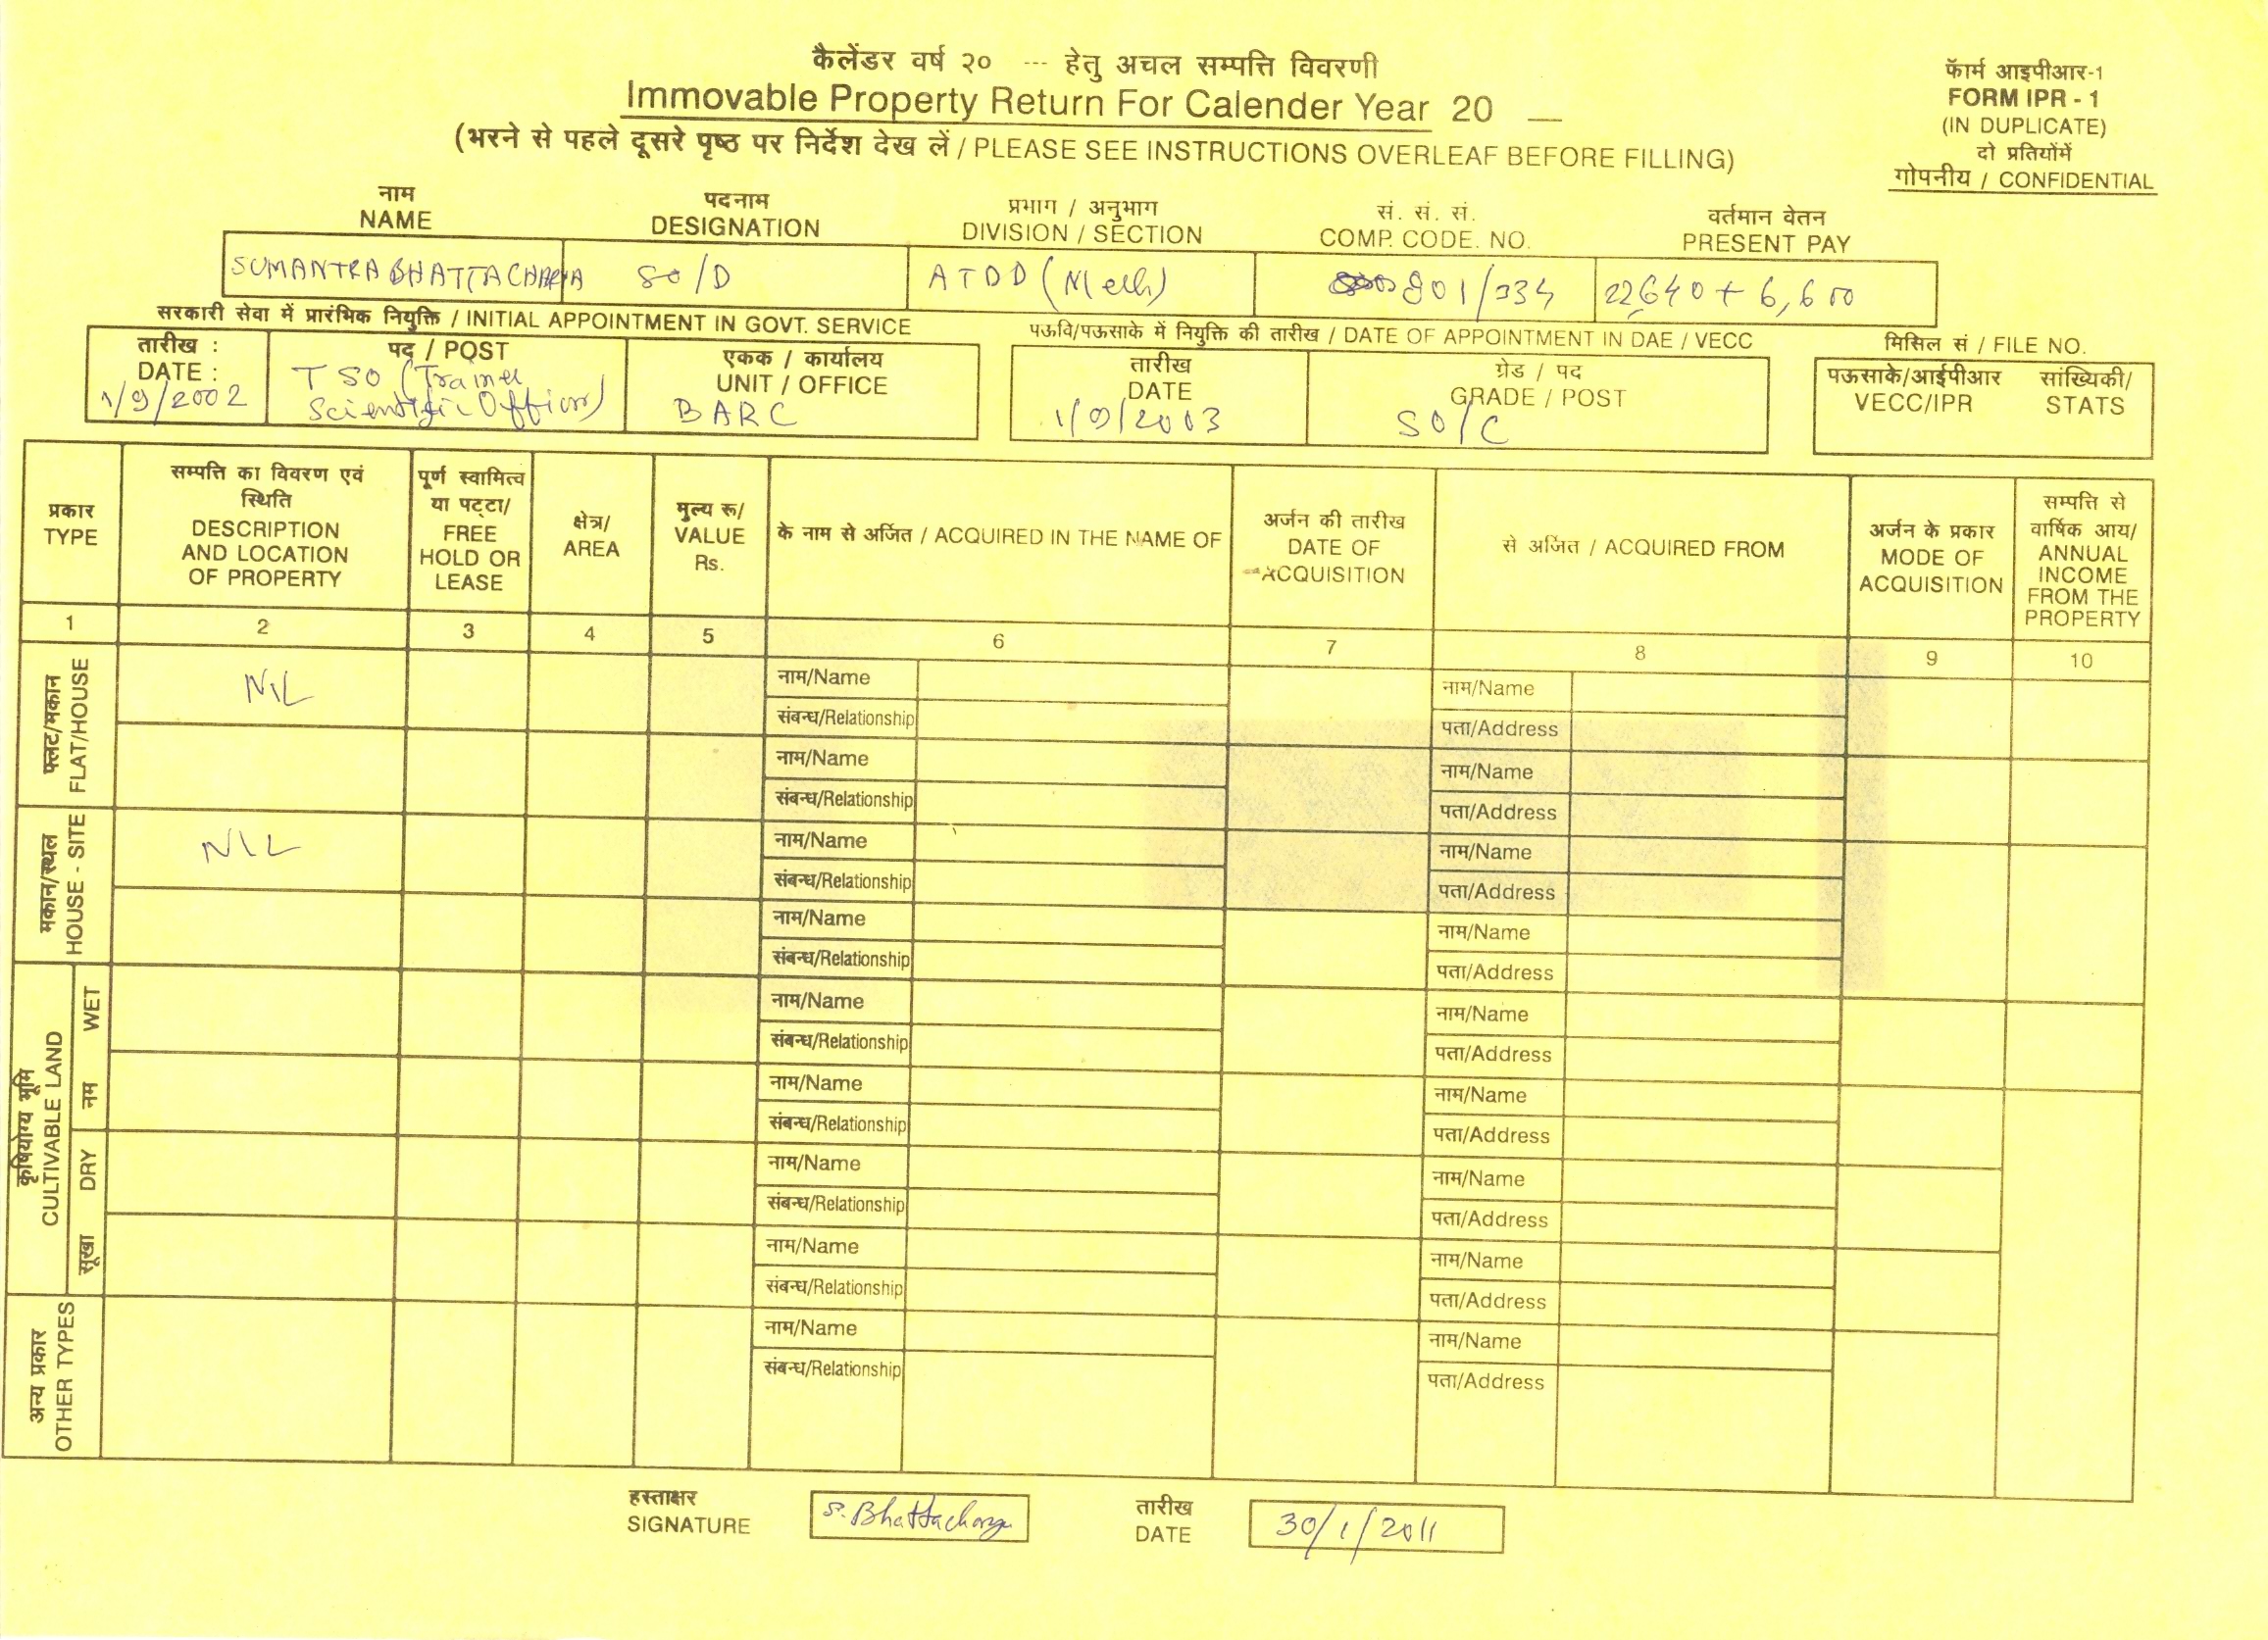 कैलेंडर वर्ष २० --- हेतु अचल सम्पत्ति विवरणी
Immovable Property Return For Calender Year 20 __
(भरने से पहले दूसरे पृष्ठ पर निर्देश देख लें / PLEASE SEE INSTRUCTIONS OVERLEAF BEFORE FILLING)
फॅार्म आइपीआर-1
FORM IPR - 1
(IN DUPLICATE)
दो प्रतियोंमें
गोपनीय / CONFIDENTIAL
नाम पदनाम प्रभाग / अनुभाग सं. सं. सं. वर्तमान वेतन
NAME DESIGNATION DIVISION / SECTION COMP. CODE. NO. PRESENT PAY
SUMANTRA BHATTACHARYA SO/D ATDD (Mech) 801/334 22,640 + 6,600
सरकारी सेवा में प्रारंभिक नियुक्ति / INITIAL APPOINTMENT IN GOVT. SERVICE
तारीख : DATE : 1/9/2002
पद / POST
TSO (Trainee
Scientific Officer)
एकक / कार्यालय
UNIT / OFFICE
BARC
पऊवि/पऊसाके में नियुक्ति की तारीख / DATE OF APPOINTMENT IN DAE / VECC
तारीख
DATE
1/9/2003
ग्रेड / पद
GRADE / POST
SO/C
मिसिल सं / FILE NO.
पऊसाके/आईपीआर सांख्यिकी/
VECC/IPR STATS
प्रकार
TYPE
सम्पत्ति का विवरण एवं
स्थिति
DESCRIPTION
AND LOCATION
OF PROPERTY
पूर्ण स्वामित्व
या पट्टा/
FREE
HOLD OR
LEASE
क्षेत्र/
AREA
मुल्य रू/
VALUE
Rs.
के नाम से अर्जित / ACQUIRED IN THE NAME OF
अर्जन की तारीख
DATE OF
ACQUISITION
से अजित / ACQUIRED FROM
अर्जन के प्रकार
MODE OF
ACQUISITION
सम्पत्ति से
वार्षिक आय/
ANNUAL
INCOME
FROM THE
PROPERTY
1 2 3 4 5 6 7 8 9 10
फ्लट/मकान
FLAT/HOUSE
NIL
नाम/Name नाम/Name
संबन्ध/Relationship पता/Address
नाम/Name नाम/Name
संबन्ध/Relationship पता/Address
मकान/स्थल
HOUSE - SITE
NIL
नाम/Name नाम/Name
संबन्ध/Relationship पता/Address
नाम/Name नाम/Name
संबन्ध/Relationship पता/Address
कृषियोग्य भूमि
CULTIVABLE LAND
नम WET
नाम/Name नाम/Name
संबन्ध/Relationship पता/Address
नाम/Name नाम/Name
संबन्ध/Relationship पता/Address
सूखा DRY
नाम/Name नाम/Name
संबन्ध/Relationship पता/Address
नाम/Name नाम/Name
संबन्ध/Relationship पता/Address
अन्य प्रकार
OTHER TYPES
नाम/Name नाम/Name
संबन्ध/Relationship पता/Address
हस्ताक्षर
SIGNATURE
S. Bhattacharya
तारीख
DATE
30/1/2011